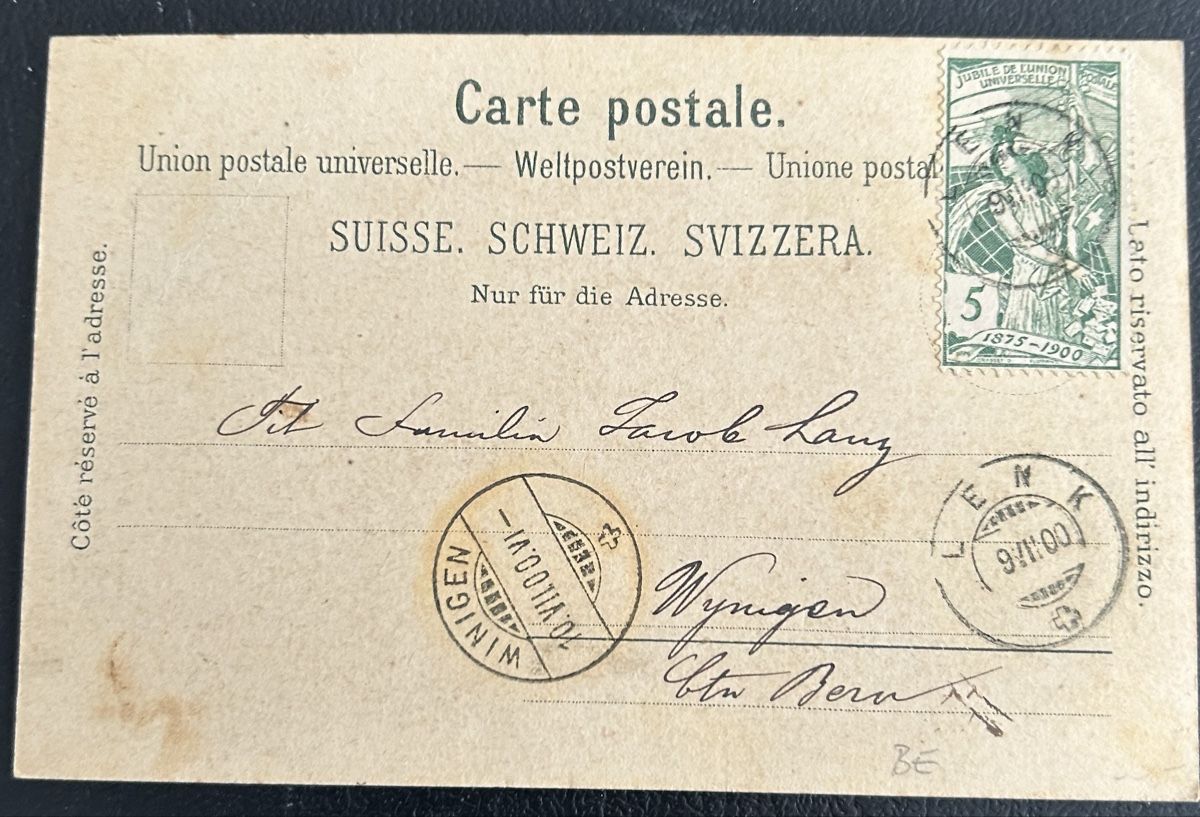 Carte postale.
JUBILÉ DE L'UNION POSTALE
UNIVERSELLE
Union postale universelle. — Weltpostverein. — Unione postal
LENK
SUISSE. SCHWEIZ. SVIZZERA.
Nur für die Adresse.
5
1875-1900
Côté réservé à l'adresse.
Lato riservato all' indirizzo.
Tit Familie Jacob Lanz
LENK
9.VII.00
WINIGEN
10.VII.00.VI-
Wynigen
Ctn Bern
BE